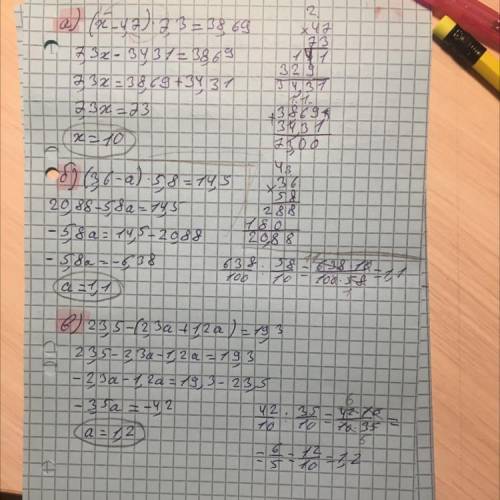 а) (x-4,7)·7,3=38,69
7,3x-34,31=38,69
7,3x=38,69+34,31
7,3x=73
x=10
2
×47
73
141
329
34,31
1 1
+38,69
34,31
73,00
б) (3,6-a)·5,8=14,5
20,88-5,8a=14,5
-5,8a=14,5-20,88
-5,8a=-6,38
a=1,1
4
×36
58
288
180
20,88
638/100 : 58/10 = 638·10/100·58 = 1,1
в) 23,5-(2,3a+1,2a)=19,3
23,5-2,3a-1,2a=19,3
-2,3a-1,2a=19,3-23,5
-3,5a=-4,2
a=1,2
42/10 : 35/10 = 42·10/10·35 =
6
5
=6/5=12/10=1,2